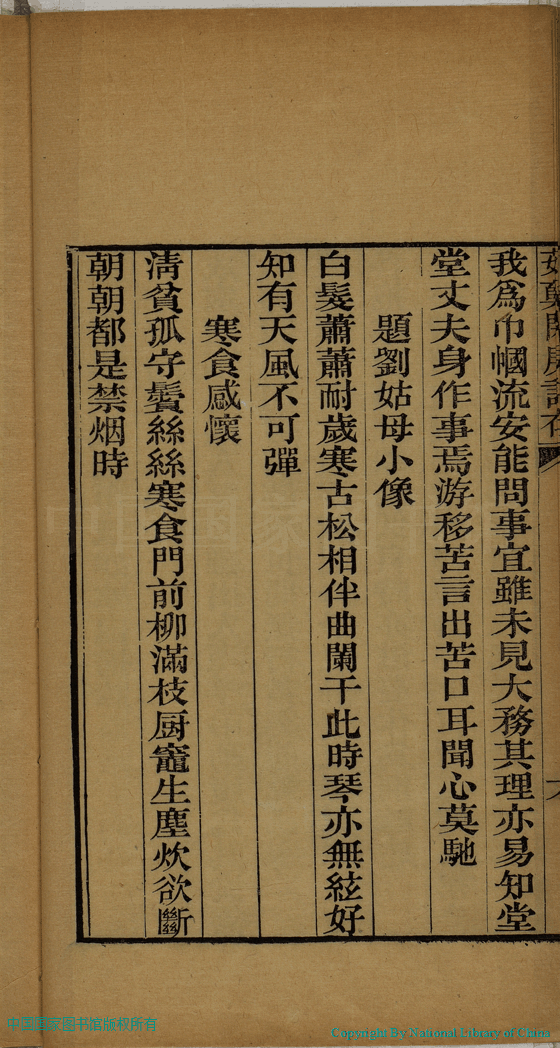 我爲巾幗流安能問事宜雖未見大務其理亦易知堂
堂丈夫身作事焉游移苦言出苦口耳聞心莫馳
題劉姑母小像
白髮蕭蕭耐歲寒古松相伴曲闌干此時琴亦無絃好
知有天風不可彈
寒食感懷
淸貧孤守鬢絲絲寒食門前柳滿枝厨竈生塵炊欲斷
朝朝都是禁烟時
中国国家图书馆版权所有
Copyright By National Library of China